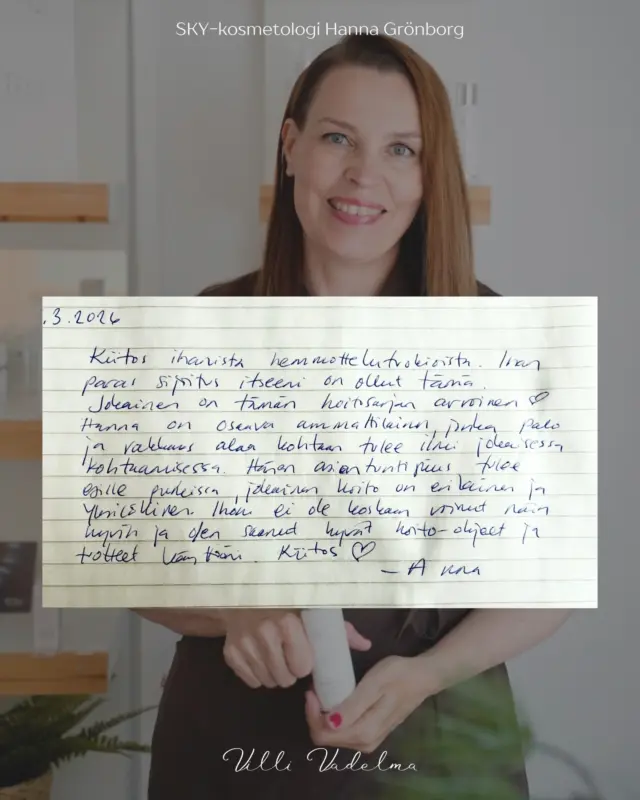 SKY-kosmetologi Hanna Grönborg
.3.2026
Kiitos ihanista hemmotteluhetkistä. Ihan
paras sijoitus itseeni on ollut tämä.
Jokainen on tämän hoitosarjan arvoinen ♡
Hanna on osaava ammattilainen, jonka palo
ja rakkaus alaa kohtaan tulee ilmi jokaisessa
kohtaamisessa. Hänen asiantuntijuus tulee
esille puheissa, jokainen hoito on erilainen ja
yksilöllinen. Ihoni ei ole koskaan voinut näin
hyvin ja olen saanut hyvät hoito-ohjeet ja
tuotteet käyttööni. Kiitos ♡
- Anna
Villi Vadelma